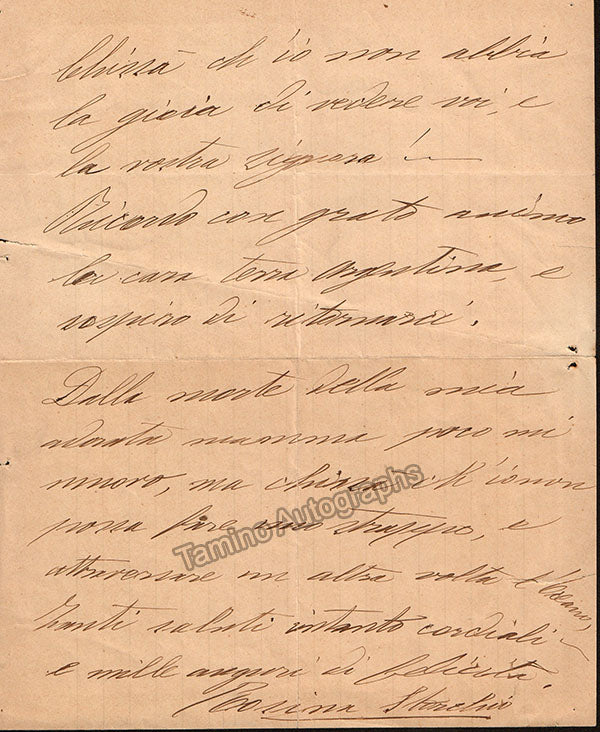 Chissà ch'io non abbia
la gioia di vedere voi, e
la vostra signora!
Ricordo con grato animo
la cara terra Argentina, e
sospiro di ritornarci.
Dalla morte della mia
adorata mamma poco mi
muovo, ma chissà ch'io non
possa fare uno strappo, e
attraversare un altra volta l'Oceano,
Tanti saluti intanto cordiali
e mille auguri di felicità.
Rosina Storchio
Tamino Autographs